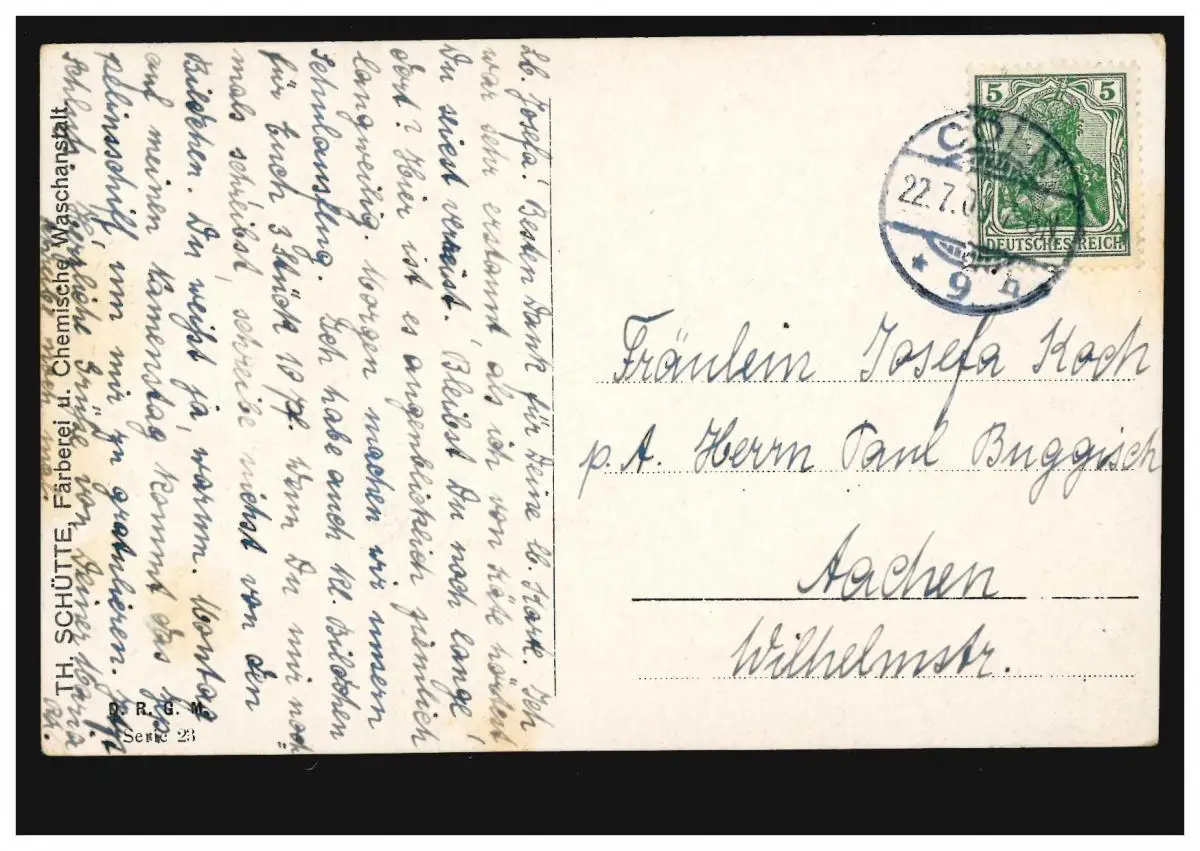 TH. SCHÜTTE, Färberei u. Chemische Waschanstalt.
D. R. G. M.
Serie 23
Lb. Josefa! Besten Dank für Deine lb. Karte. Ich
war sehr erstaunt, als ich von Käte hörte,
Du seiest verreist. Bleibst Du noch lange
dort? Hier ist es augenblicklich ziemlich
langweilig. Morgen machen wir unsern
Schulausflug. Ich habe auch kl. Bildchen
für Euch 3 Stück 10 Pf. Wenn Du mir noch
mals schreibst, schreibe nichts von den
Bildchen. Du weißt ja, warum. Montag
auf meinen Namenstag kommt das Zep
pelinsschiff, um mir zu gratulieren.
Schluß. Herzliche Grüße von Deiner Maria
5
5
DEUTSCHES REICH
CÖLN
22.7.0
* 9 h
Fräulein Josefa Koch
p. A. Herrn Paul Buggisch
Aachen
Wilhelmstr.